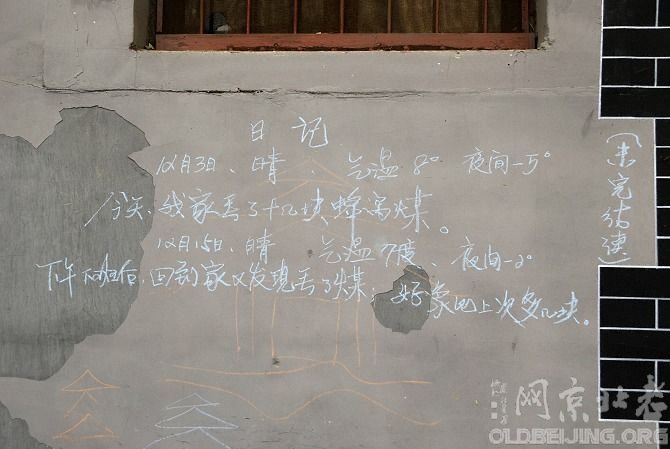 日记
12月3日、晴、气温 8° 夜间-5°
今天、我家丢了十几块蜂窝煤。
12月15日、晴 气温7度、夜间-2°
下午下班后、回到家又发现丢了煤；好象比上次多几块。
(未完待续)
网京北老
OLDBEIJING.ORG